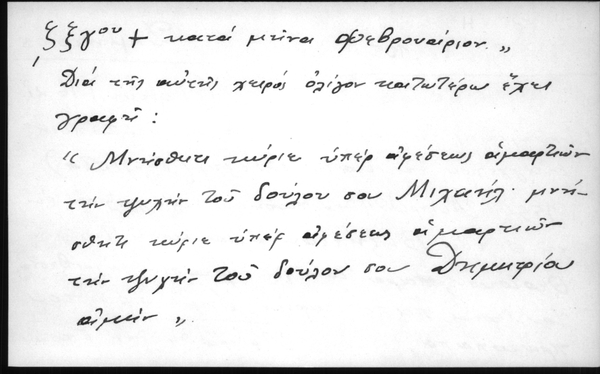 ͵ζξγου + κατά μῆνα Φεβρουάριον.„
Διά τῆς αὐτῆς χειρός ὀλίγον κατωτέρω ἔχει
γραφῆ :
“ Μνήσθητι κύριε ὑπέρ ἀφέσεως ἁμαρτιῶν
τήν ψυχήν τοῦ δούλου σου Μιχαήλ· μνή-
σθητι κύριε ὑπέρ ἀφέσεως ἁμαρτιῶν
τήν ψυχήν τοῦ δούλου σου Δημητρίου
ἀμήν „.